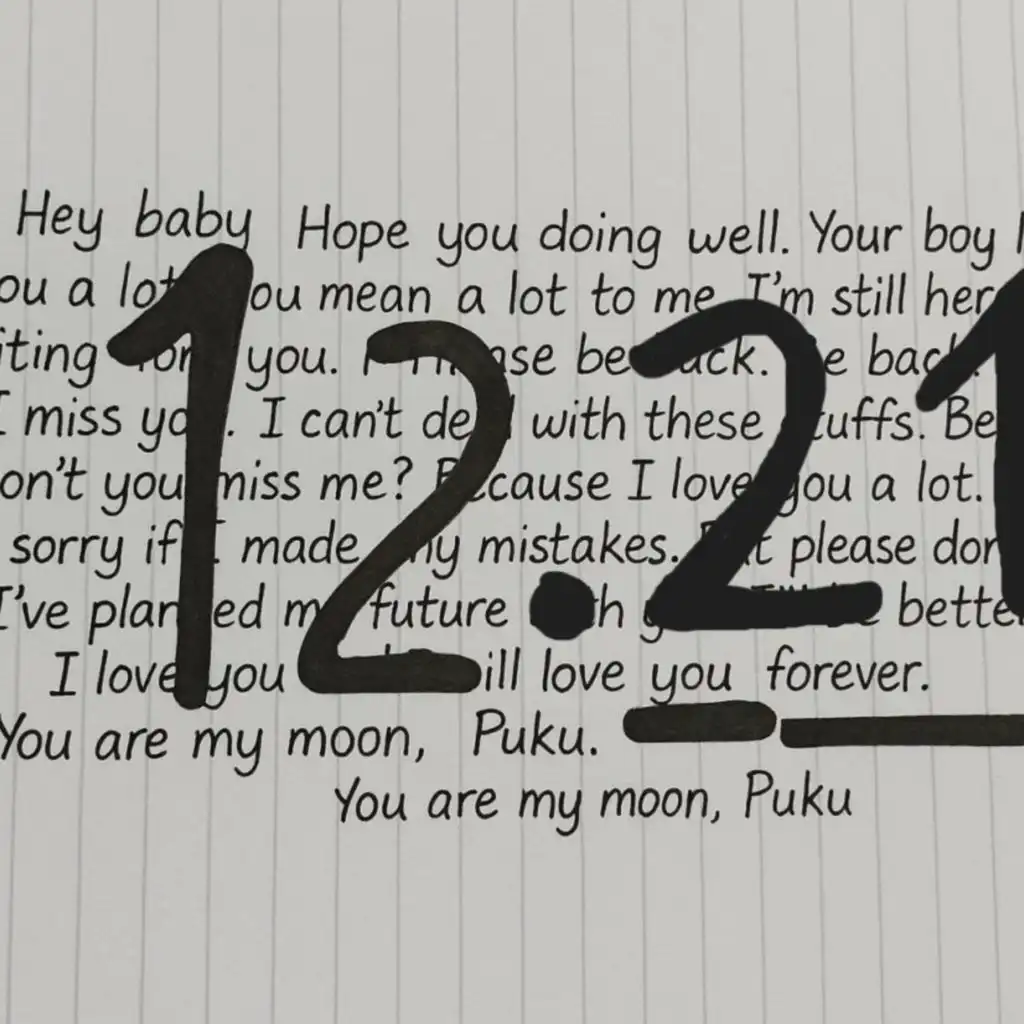 Hey baby Hope you doing well. Your boy
you a lot. You mean a lot to me I'm still here
for you. Please be back. Be back.
I miss you. I can't deal with these stuffs. Be
don't you miss me? Because I love you a lot.
sorry if I made any mistakes. But please don't
I've planned my future with better
I love you will love you forever.
You are my moon, Puku.
You are my moon, Puku
12.21